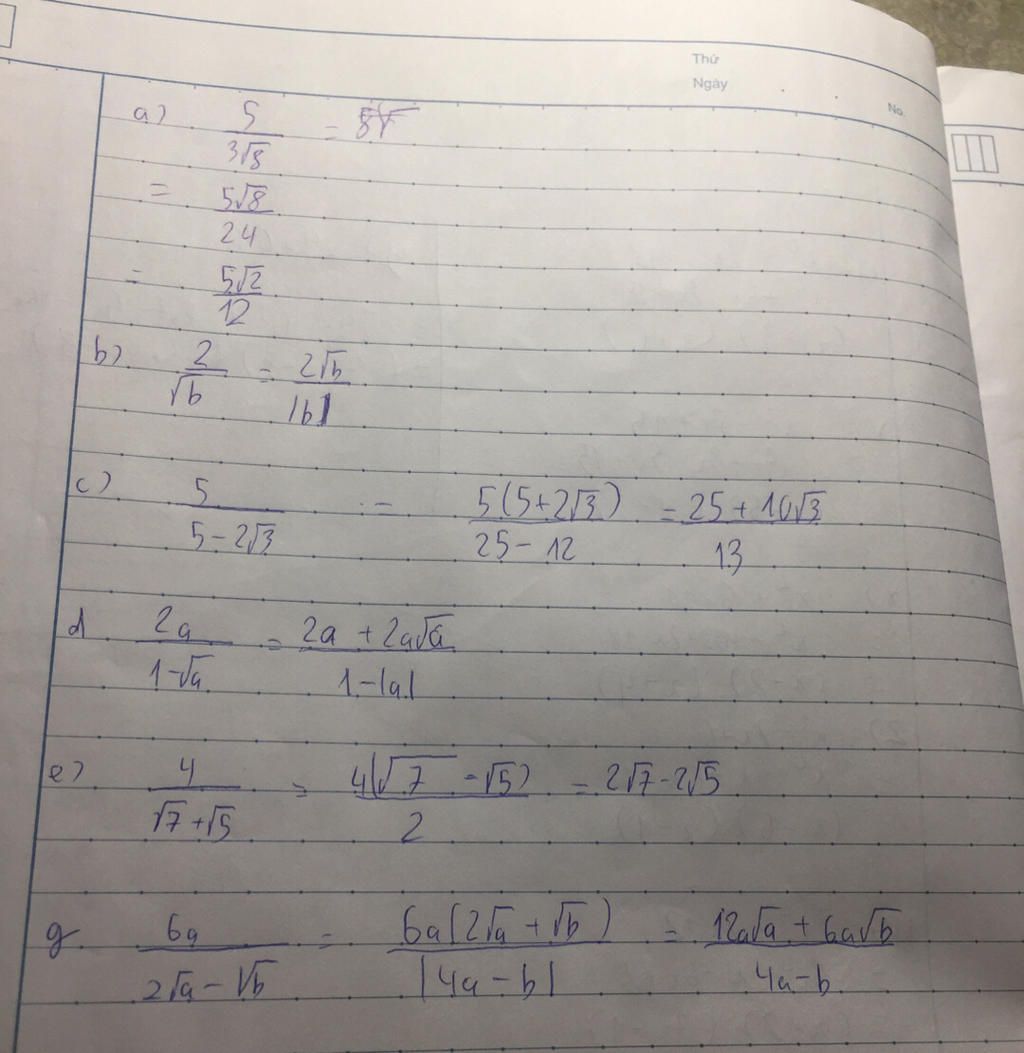 Thứ
Ngày
No.
a) 5/(3√8) = 5√
= 5√8/24
= 5√2/12
b) 2/√b = 2√b/|b|
c) 5/(5-2√3) = 5(5+2√3)/(25-12) = (25+10√3)/13
d 2a/(1-√a) = (2a+2a√a)/(1-|a|)
e) 4/(√7+√5) = 4(√7-√5)/2 = 2√7-2√5
g. 6a/(2√a-√b) = 6a(2√a+√b)/|4a-b| = (12a√a+6a√b)/(4a-b)